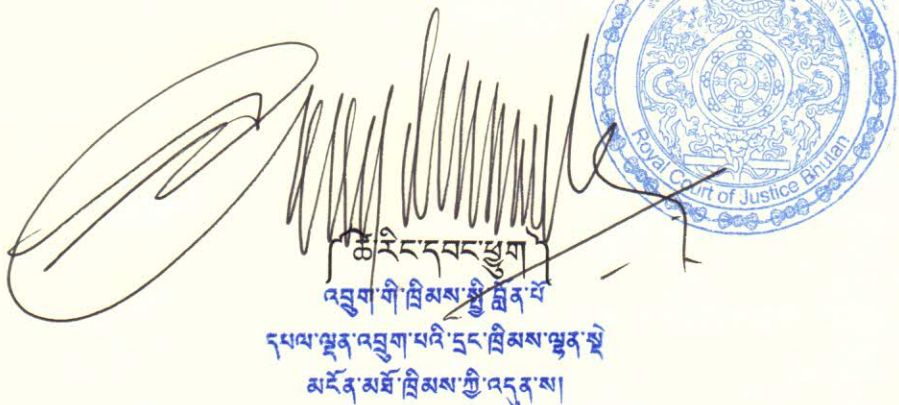 Royal Court of Justice Bhutan
༼ཚེ་རིང་དབང་ཕྱུག༽
འབྲུག་གི་ཁྲིམས་སྤྱི་བློན་པོ
དཔལ་ལྡན་འབྲུག་པའི་དྲང་ཁྲིམས་ལྷན་སྡེ
མངོན་མཐོ་ཁྲིམས་ཀྱི་འདུན་ས།